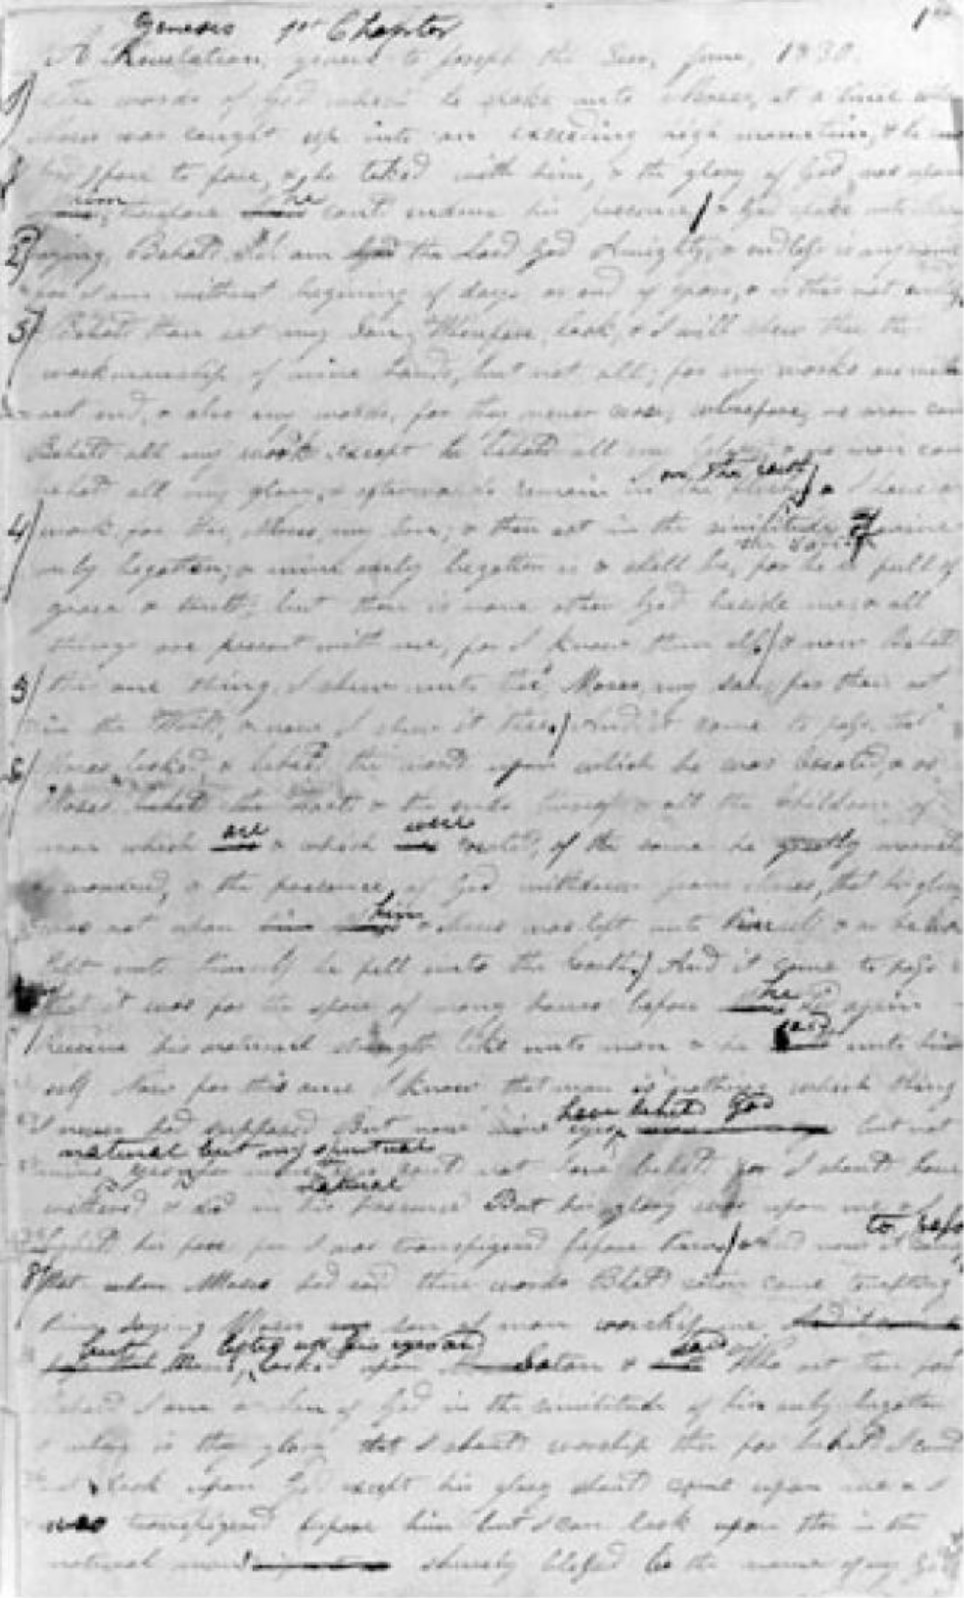 Genesis 1st Chapter
A Revelation given to Joseph the June 1830
The words of God which he spake unto Moses, at a time when
Moses was caught up into an exceeding high mountain, & he saw
God face to face, & he talked with him, & the glory of God was upon
him therefore he could endure his presence / & God spake unto Moses
2 saying, Behold I am the Lord God Almighty, & endless is my name
for I am without begining of days or end of years, & is this not endless
3 Behold thou art my Son, Wherefore look, & I will shew thee the
workmanship of mine hands, but not all; for my works are without
end, & also my words, for they never cease; wherefore, no man can
Behold all my works except he behold all my glory & no man can
behold all my glory, & afterwards remain in the flesh on the earth / & I have a
4 work for thee, Moses, my Son; & thou art in the similitude of mine
only begotten; & mine only begotten is & shall be, for he is full of
the Savior
grace & truth; but there is none other God beside me & all
things are present with me, for I know them all / & now behold
5 this one thing I shew unto thee Moses, my son, for thou art
in the World, & now I shew it thee / And it came to pass, that
6 Moses looked & beheld the world upon which he was created, & as
Moses beheld the world & the ends thereof & all the children of
men which are & which were created, of the same he greatly marveled
& wondered, & the presence of God withdrew from Moses, that his glory
was not upon him & Moses was left unto himself & as he was
left unto himself he fell unto the Earth / And it came to pass
that it was for the space of many hours before he did again
7 receive his natural strength like unto man & he said unto him
self Now for this cause I know that man is nothing which thing
I never had supposed But now mine eyes have beheld God but not
natural but my spiritual
mine eyes could not have beheld for I should have
natural
withered & died in his presence But his glory was upon me & I
beheld his face for I was transfigured before him / & now it came to pass
8 that when Moses had said these words Behold Satan came tempting
him saying Moses son of man worship me
but lifted up his eyes and
Moses looked upon Satan & said Who art thou for
behold I am a Son of God in the similitude of his only begotten
& where is thy glory that I should worship thee for behold I could
not look upon God except his glory should come upon me & I
was transfigured before him but I can look upon thee in the
natural man surely blessed be the name of my God